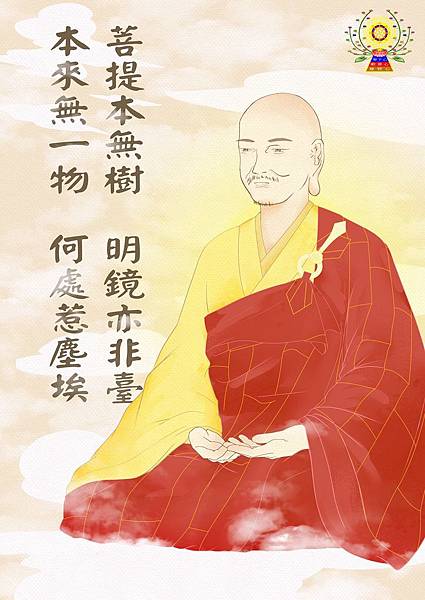 菩提本無樹　明鏡亦非臺
本來無一物　何處惹塵埃